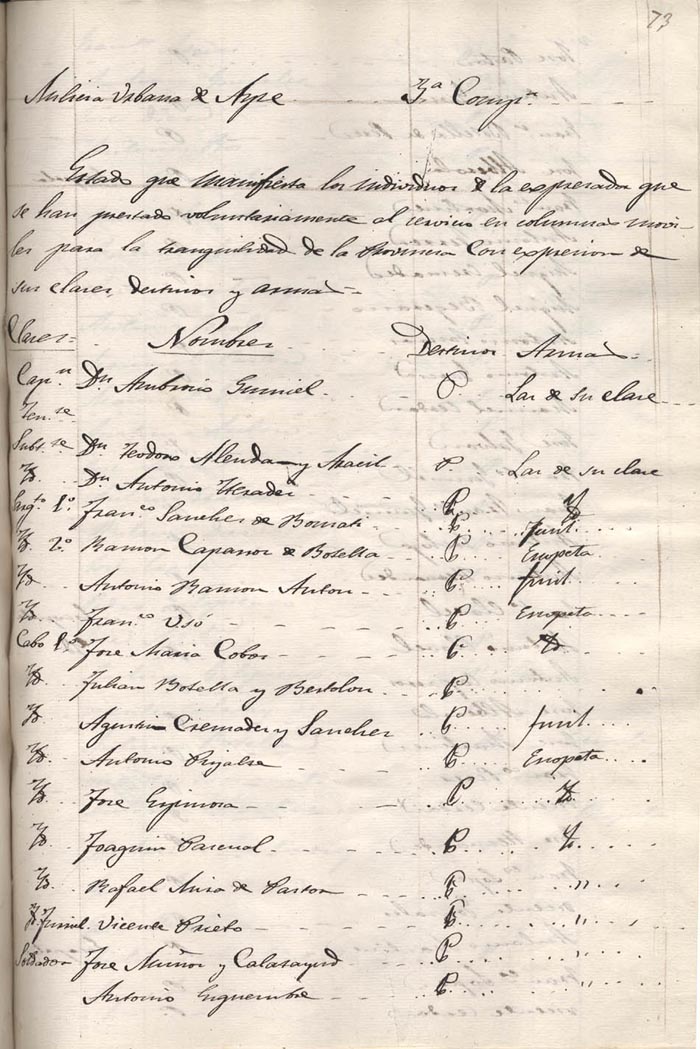 73
Milicia Urbana de Aspe 3ª Compª
Estado que manifiesta los individuos de la expresada que
se han prestado voluntariamente al servicio en columnas movi-
les para la tranquilidad de la Provincia con expresion de
sus clases, destinos y armas
Clases Nombres Destinos Armas
Capn Dn Ambrosio Gumiel P Las de su clase
Tente
Subte Dn Teodoro Alenda y Aracil P Las de su clase
Yd Dn Antonio P Yd
Sargto 1º Franco Sanchez de P fusil
Yd 2º Ramon Caparros de Botella P Escopeta
Yd Antonio Ramon Anton P fusil
Yd Franco Usó P Escopeta
Cabo 1º Jose Maria Cobos P Yd
Yd Julian Botella y Bertolon P
Yd Agustin Cremades y Sanchez P fusil
Yd Antonio P Escopeta
Yd Jose Espinosa P Yd
Yd Joaquin Pascual P Yd
Yd Rafael Mira de Pastor P "
Vicente Prieto P "
Soldados Jose Muñoz y Calatayud P "
Antonio P "